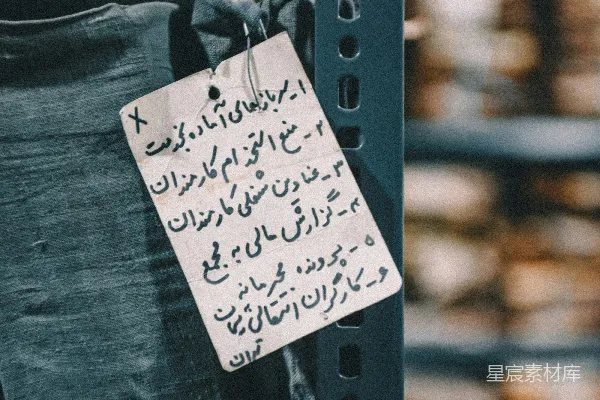 X
۱ـ سربازهای آماده بخدمت
۲ـ منع استخدام کارمندان
۳ـ عناوین شغلی کارمندان
۴ـ گزارش مالی به مجمع
۵ـ پرونده محرمانه
۶ـ کارگران انتقالی
تهران
星宸素材库